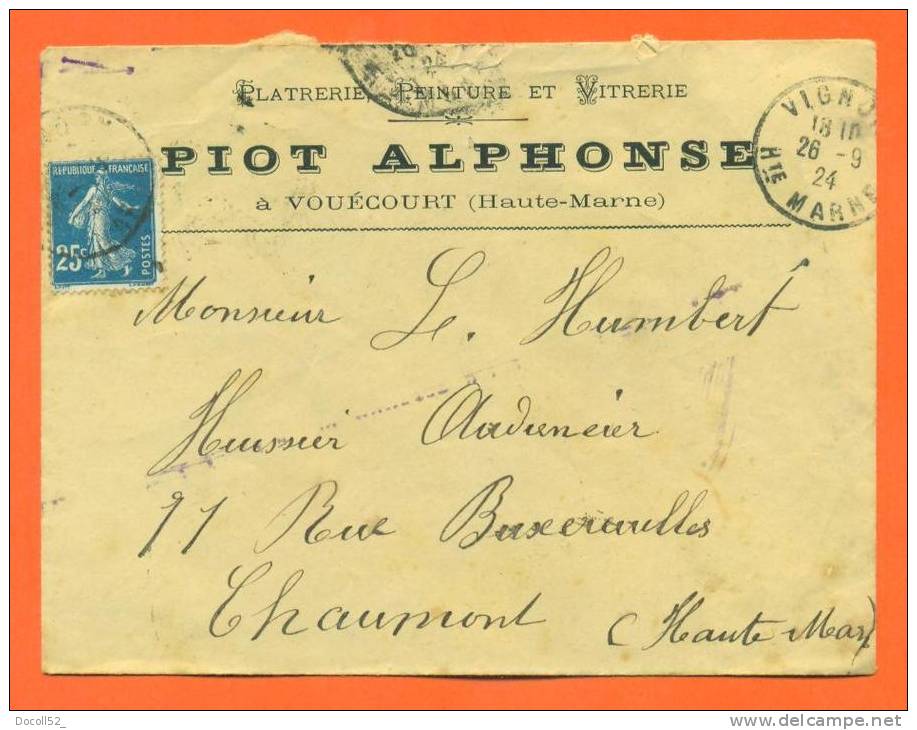 PLATRERIE, PEINTURE ET VITRERIE
PIOT ALPHONSE
à VOUÉCOURT (Haute-Marne)
REPUBLIQUE FRANÇAISE
25c
POSTES
VIGNO
18 10
26 - 9
24
HTE MARNE
Monsieur L. Humbert
Huissier Audiencier
11 Rue Buxereuilles
Chaumont (Haute Mar)
Docoll52_
www.delcampe.net